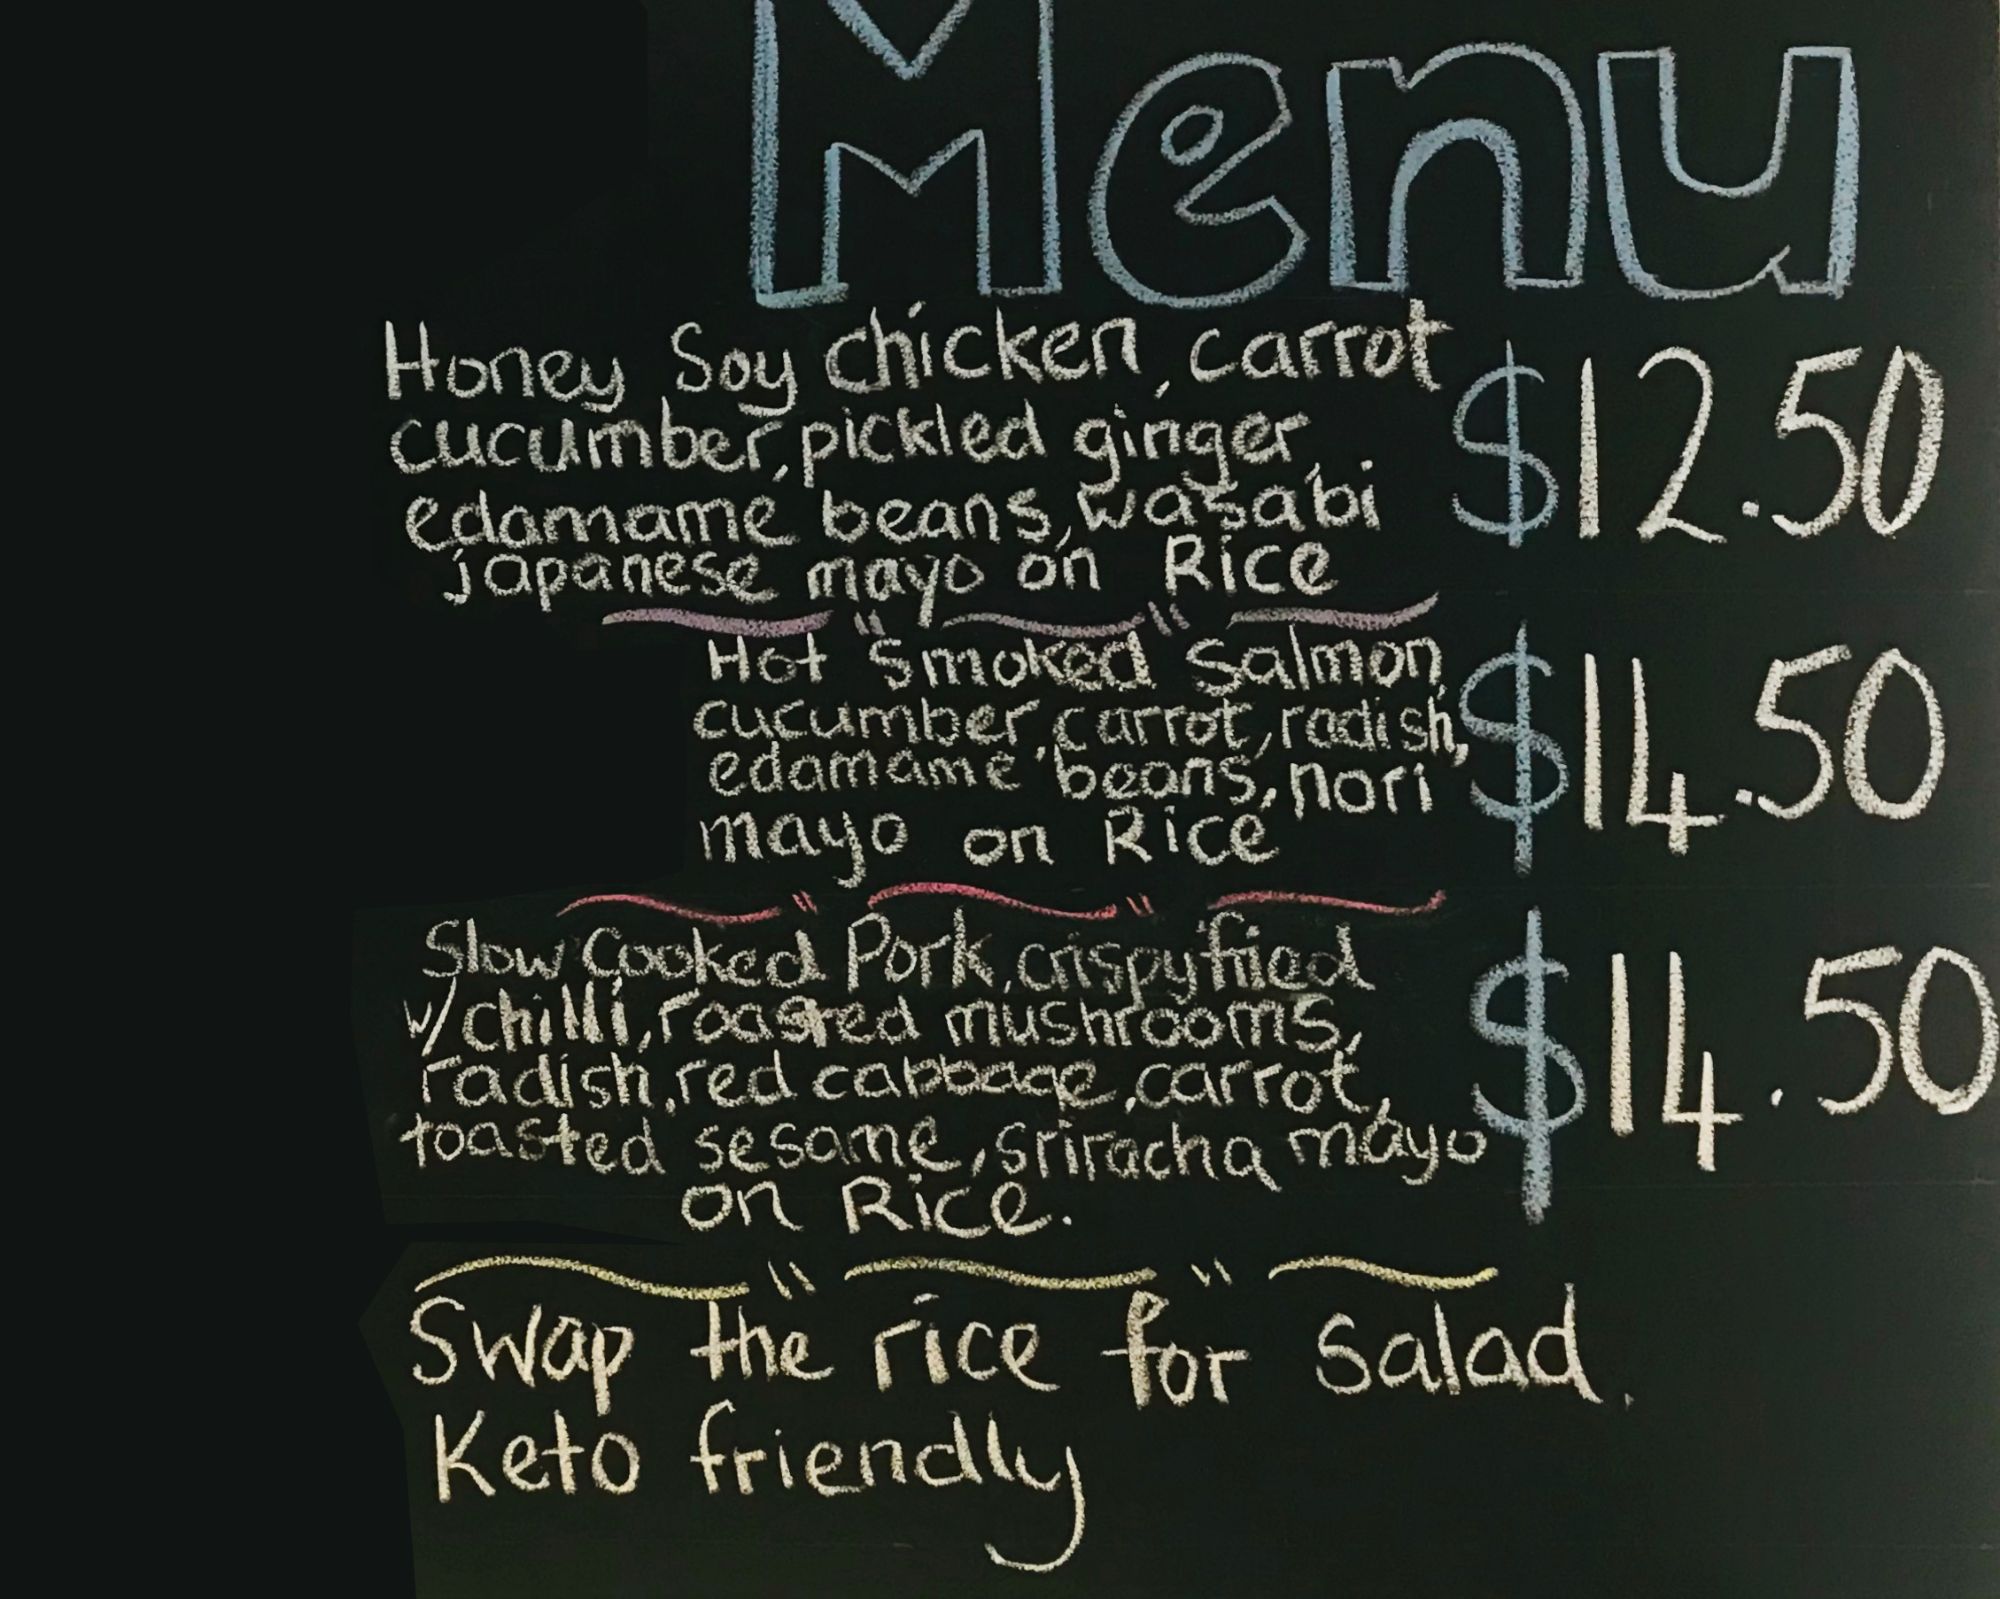 Menu
Honey Soy chicken, carrot $12.50
cucumber, pickled ginger,
edamame beans, wasabi
japanese mayo on Rice
Hot Smoked Salmon, $14.50
cucumber, carrot, radish,
edamame beans, nori
mayo on Rice
Slow Cooked Pork, crispy fried $14.50
w/ chilli, roasted mushrooms,
radish, red cabbage, carrot,
toasted sesame, sriracha mayo
on Rice.
Swap the rice for salad.
Keto friendly